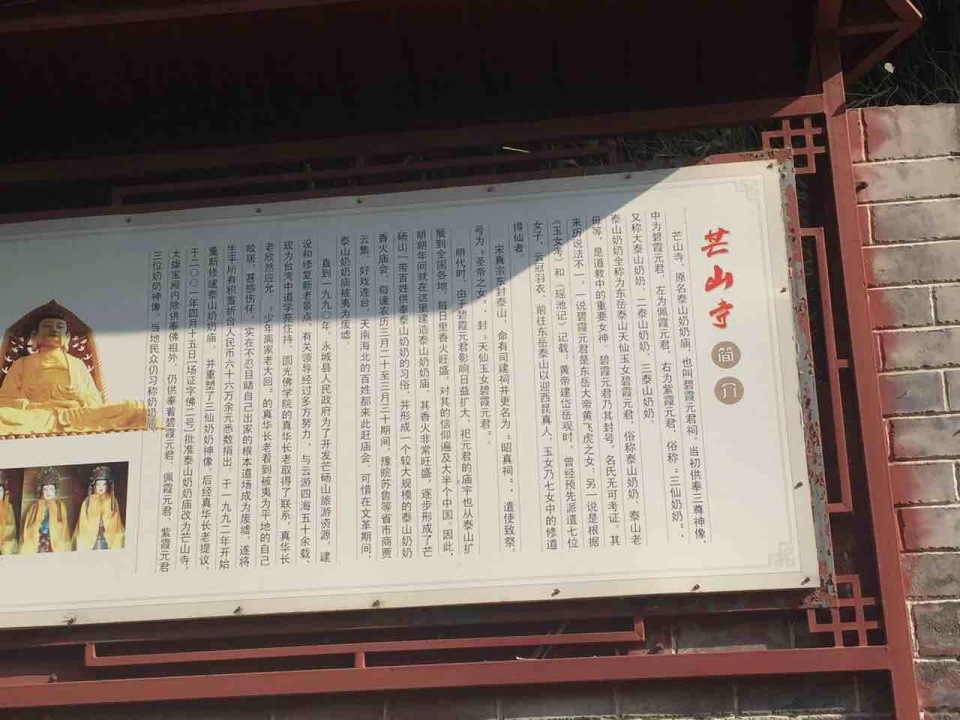 芒山寺
简介
芒山寺，原名泰山奶奶庙，也叫碧霞元君祠。当初供奉三尊神像，
中为碧霞元君，左为佩霞元君，右为紫霞元君，俗称：“三仙奶奶”，
又称大泰山奶奶、二泰山奶奶、三泰山奶奶。
泰山奶奶全称为东岳泰山天仙玉女碧霞元君，俗称泰山奶奶、泰山老
母等，是道教中的重要女神，碧霞元君乃其封号，名氏无可考证，其
来历说法不一，一说碧霞元君是东岳大帝黄飞虎之女；另一说是根据
《玉女考》和《瑶池记》记载：黄帝建岱岳观时，曾经预先派遣七位
女子，云冠羽衣，前往东岳泰山以迎西昆真人，玉女乃七女中的修道
得仙者。
宋真宗东封泰山，命有司建祠并更名为：“昭真祠”，遣使致祭，
号为“圣帝之女”，封“天仙玉女碧霞元君”。
明代时，由于碧霞元君影响日益扩大，祀元君的庙宇也从泰山扩
展到全国各地，每日里香火旺盛，对其的信仰遍及大半个中国。因此，
明朝年间就在这里建造泰山奶奶庙，其香火非常旺盛，逐步形成了芒
砀山一带百姓供奉泰山奶奶的习俗，并形成一个较大规模的泰山奶奶
香火庙会，每逢农历三月二十至三月三十期间，豫皖苏鲁等省市商贾
云集，好戏连台，天南海北的百姓都来此赶庙会。可惜在文革期间，
泰山奶奶庙被夷为废墟。
直到一九九〇年，永城县人民政府为了开发芒砀山旅游资源，建
设和修复新老景点，有关领导经过多方努力，与云游四海五十余载，
现为台湾中道学苑住持、圆光佛学院的真华长老取得了联系，真华长
老欣然应允，“少年离家老大回”的真华长老看到被夷为平地的自己
故居，甚感伤怀，实在不忍目睹自己出家的根本道场成为废墟，遂将
生平所有积蓄折合人民币六十六万余元悉数捐出，于一九九二年开始
重新修建泰山奶奶庙，并重塑了三仙奶奶神像。后经真华长老提议，
于二〇〇一年四月十五日一场证字佛二号，批准泰山奶奶庙改为芒山寺，
大雄宝殿内除供奉佛祖外，仍供奉着碧霞元君、佩霞元君、紫霞元君
三位奶奶神像，当地民众仍习称奶奶庙。